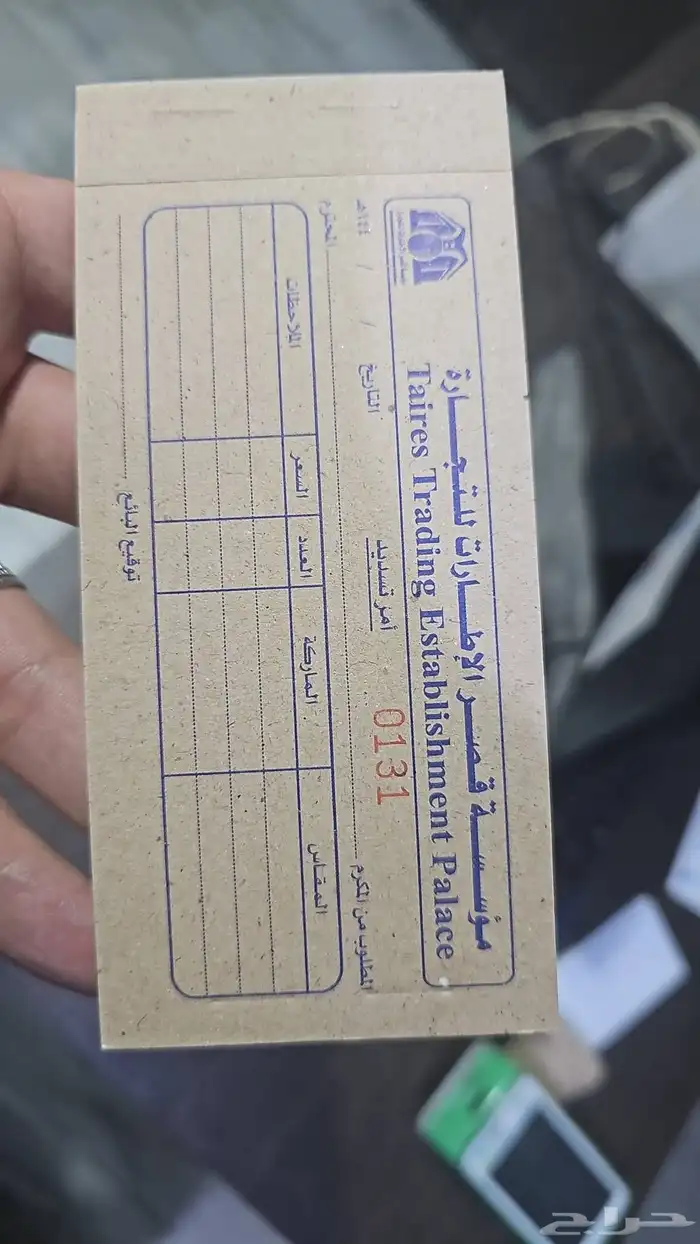 مؤسسة قصر الإطارات للتجارة
Taires Trading Establishment Palace
0131
أمر تسديد
التاريخ / / ١٤هـ
المطلوب من المكرم
المحترم
المقاس الماركة العدد السعر الملاحظات
توقيع البائع
حراج